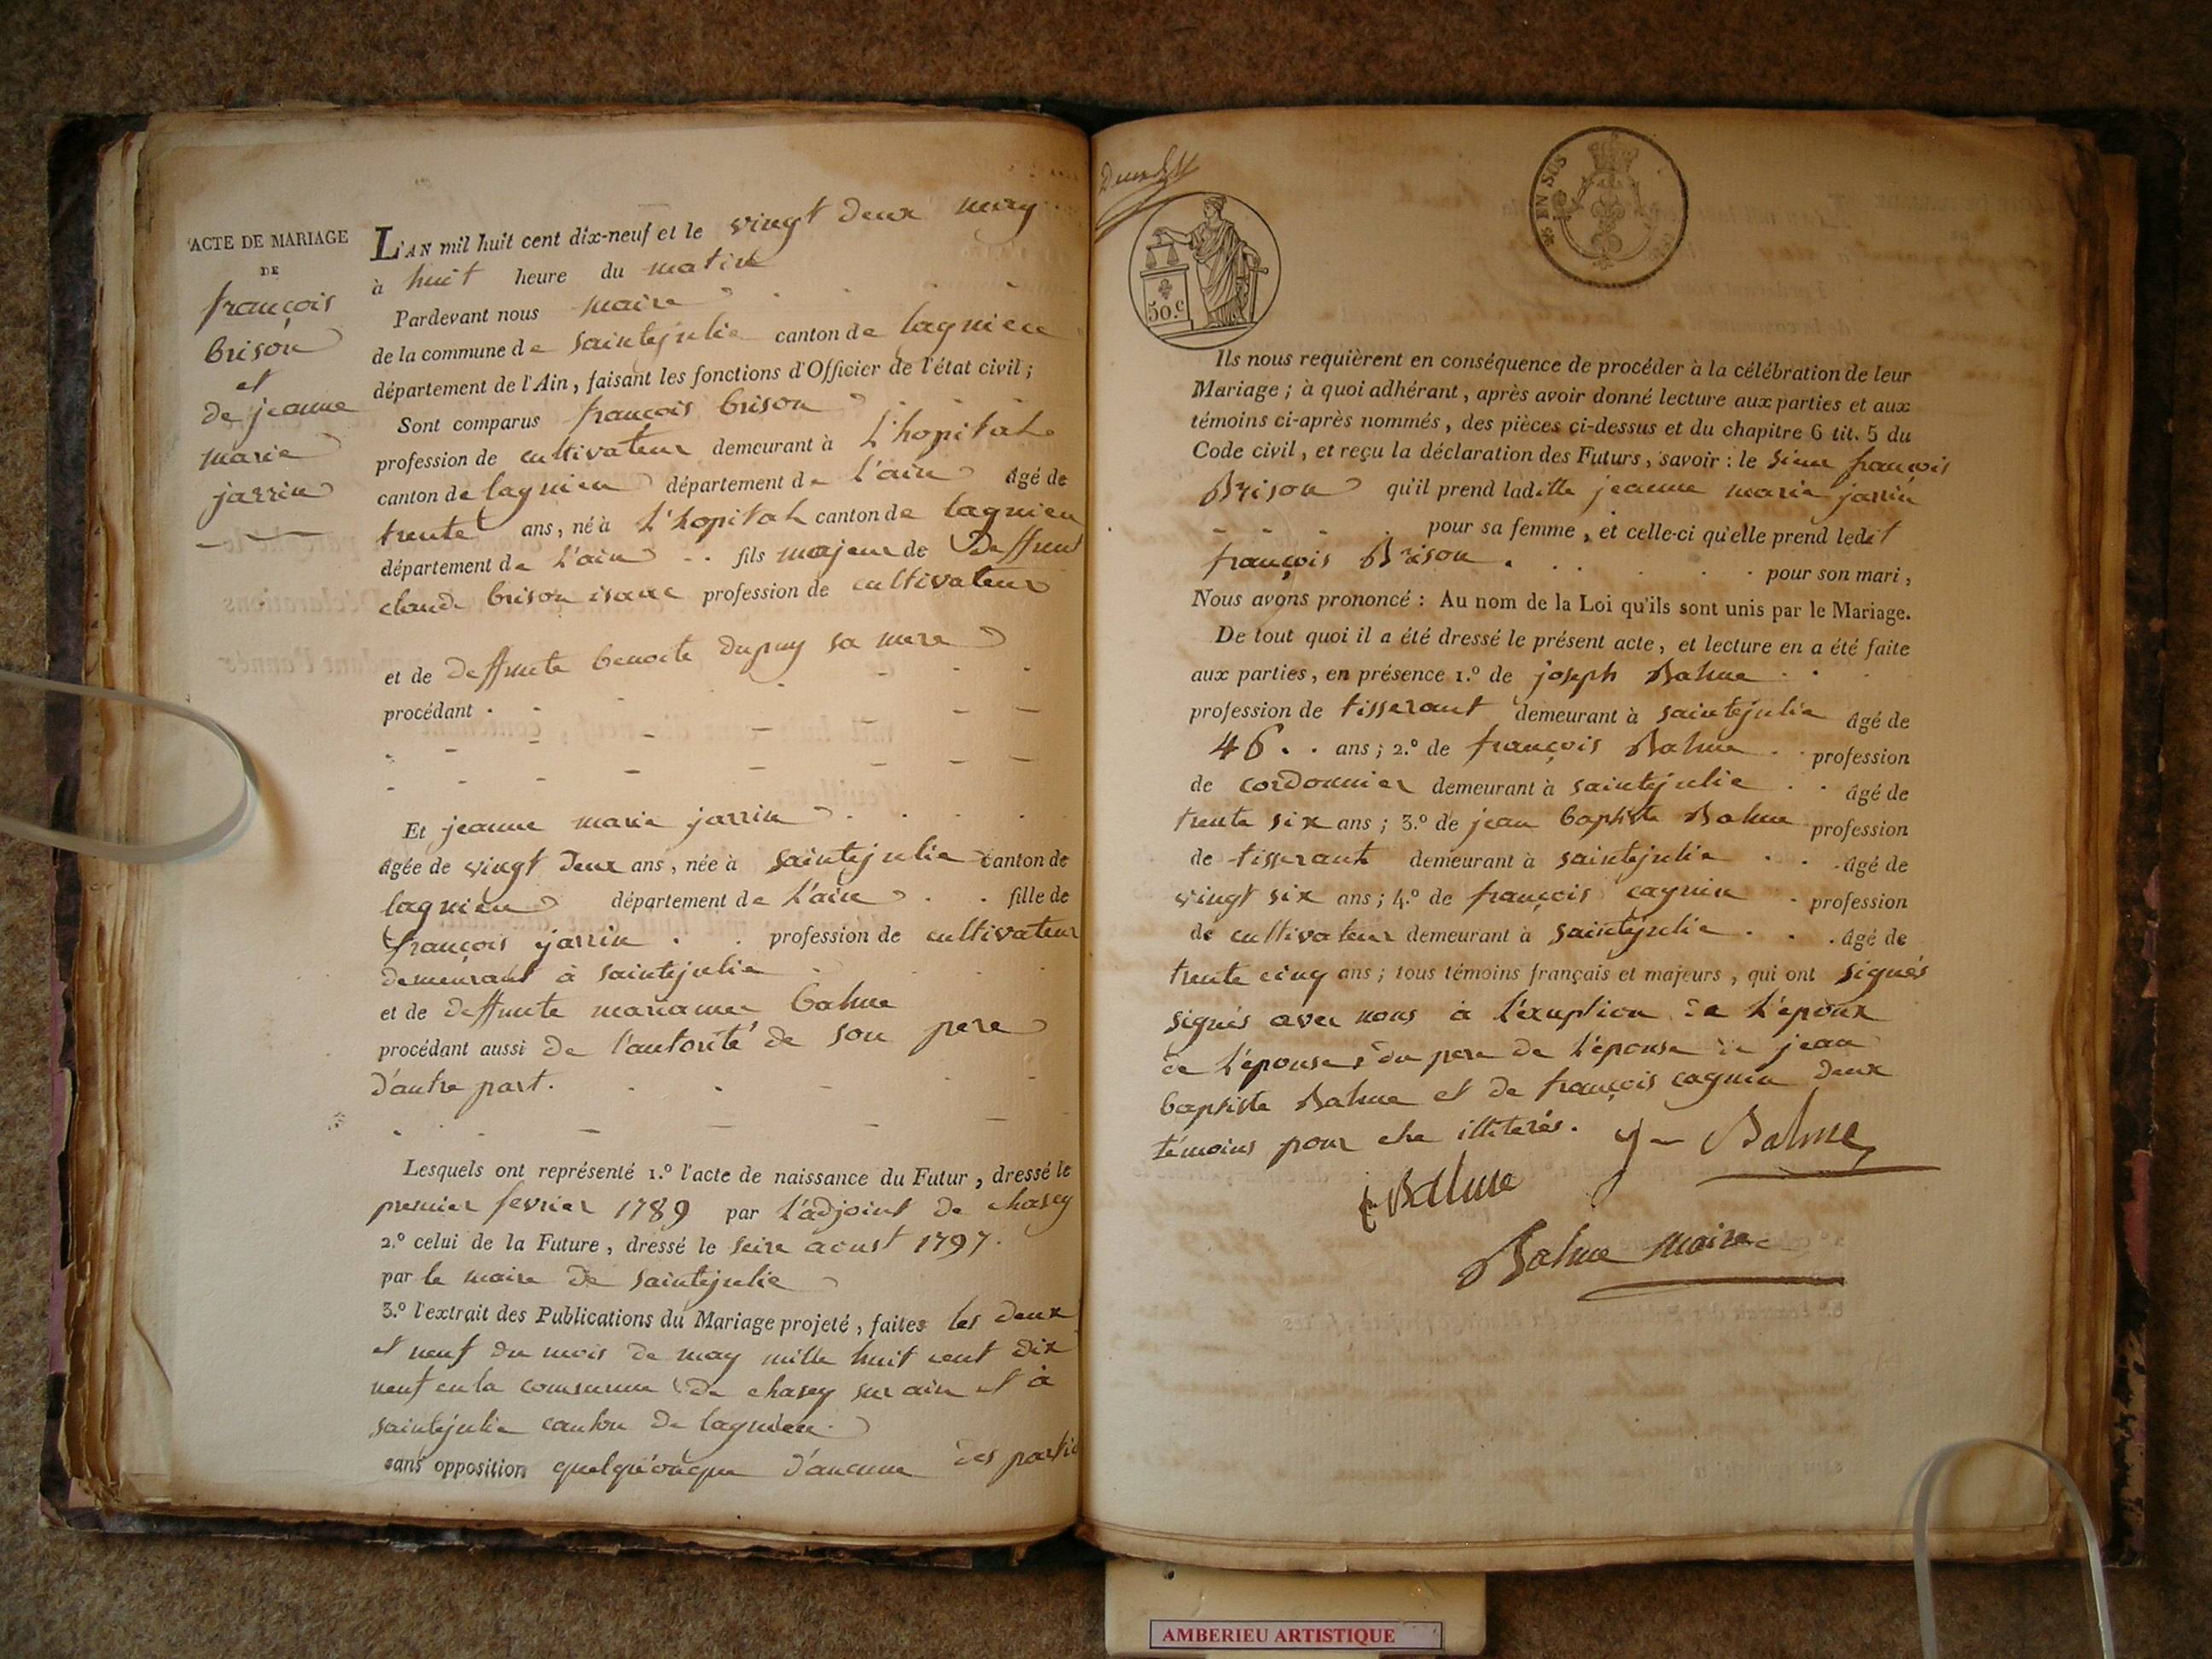 ACTE DE MARIAGE
DE
françois
brison
et
de jeanne
marie
jarrin
L'AN mil huit cent dix-neuf et le vingt deux may
à huit heure du matin
Pardevant nous maire
de la commune de saintejulie canton de lagnieu
département de l'Ain, faisant les fonctions d'Officier de l'état civil;
Sont comparus françois brison
profession de cultivateur demeurant à L'hopital
canton de lagnieu département de l'ain âgé de
trente ans, né à L'hopital canton de lagnieu
département de L'ain fils majeur de deffunt
claude brison isaac profession de cultivateur
et de deffunte benoite dupuy sa mere
procédant
Et jeanne marie jarrin
âgée de vingt deux ans, née à saintejulie canton de
lagnieu département de L'ain fille de
françois jarrin profession de cultivateur
demeurant à saintejulie
et de deffunte marianne balme
procédant aussi de l'autorité de son pere
d'autre part.
Lesquels ont représenté 1.º l'acte de naissance du Futur, dressé le
premier fevrier 1789 par L'adjoint de chasey
2.º celui de la Future, dressé le seize aoust 1797.
par le maire de saintejulie
3.º l'extrait des Publications du Mariage projeté, faites les deux
et neuf du mois de may mille huit cent dix
neuf en la commune de chasey sur ain et à
saintejulie canton de lagnieu.
sans opposition quelqu'onque d'aucune des partie
50.c
EN SUS
Ils nous requièrent en conséquence de procéder à la célébration de leur
Mariage; à quoi adhérant, après avoir donné lecture aux parties et aux
témoins ci-après nommés, des pièces ci-dessus et du chapitre 6 tit. 5 du
Code civil, et reçu la déclaration des Futurs, savoir: le sieur françois
Brison qu'il prend laditte jeanne marie jarrin
pour sa femme, et celle-ci qu'elle prend ledit
françois Brison pour son mari,
Nous avons prononcé: Au nom de la Loi qu'ils sont unis par le Mariage.
De tout quoi il a été dressé le présent acte, et lecture en a été faite
aux parties, en présence 1.º de joseph Balme
profession de tisserant demeurant à saintejulie âgé de
46 ans; 2.º de françois Balme profession
de cordonnier demeurant à saintejulie âgé de
trente six ans; 3.º de jean baptiste Balme profession
de tisserant demeurant à saintejulie âgé de
vingt six ans; 4.º de françois cagnin profession
de cultivateur demeurant à saintejulie âgé de
trente cinq ans; tous témoins français et majeurs, qui ont signés
signés avec nous à l'exuption de L'époux
de L'épouse, du pere de L'épouse de jean
baptiste Balme et de françois cagnin deux
témoins pour etre illiterés. J Balme
Balme
Balme maire
AMBERIEU ARTISTIQUE